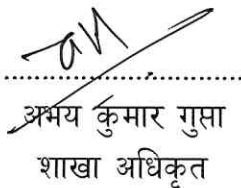 अभय कुमार गुप्ता
शाखा अधिकृत